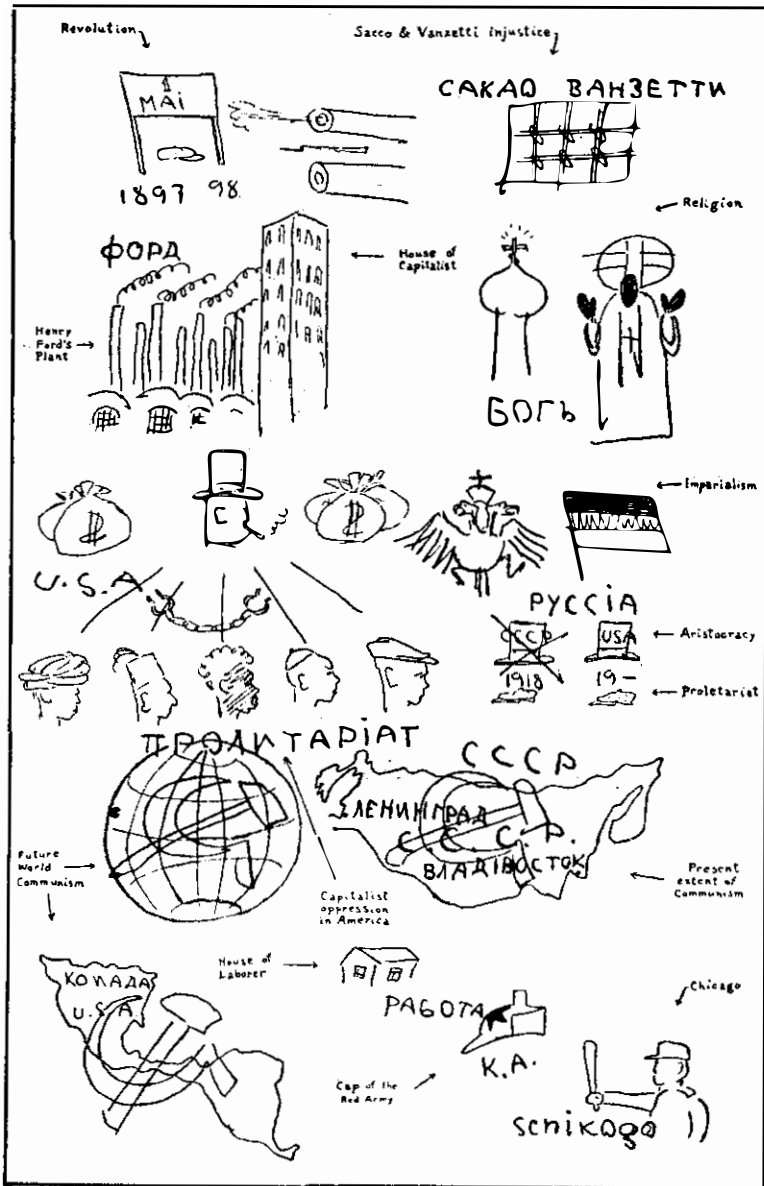 Revolution
Sacco & Vanzetti injustice
МАІ
САКАО ВАНЗЕТТИ
1897 98.
Religion
ФОРД
House of
Capitalist
Henry
Ford's
Plant
БОГЬ
Imperialism
U.S.A.
РУССІА
СССР USA
Aristocracy
1918 19-
Proletariat
ПРОЛИТАРІАТ
СССР
ЛЕНИНГРАД
С С С.Р.
ВЛАДІВОСТОК
Future
World
Communism
Capitalist
oppression
in America
Present
extent of
Communism
House of
Laborer
КОПАДА
U.S.A.
РАБОТА
Chicago
К.А.
Cap of the
Red Army
scnikago